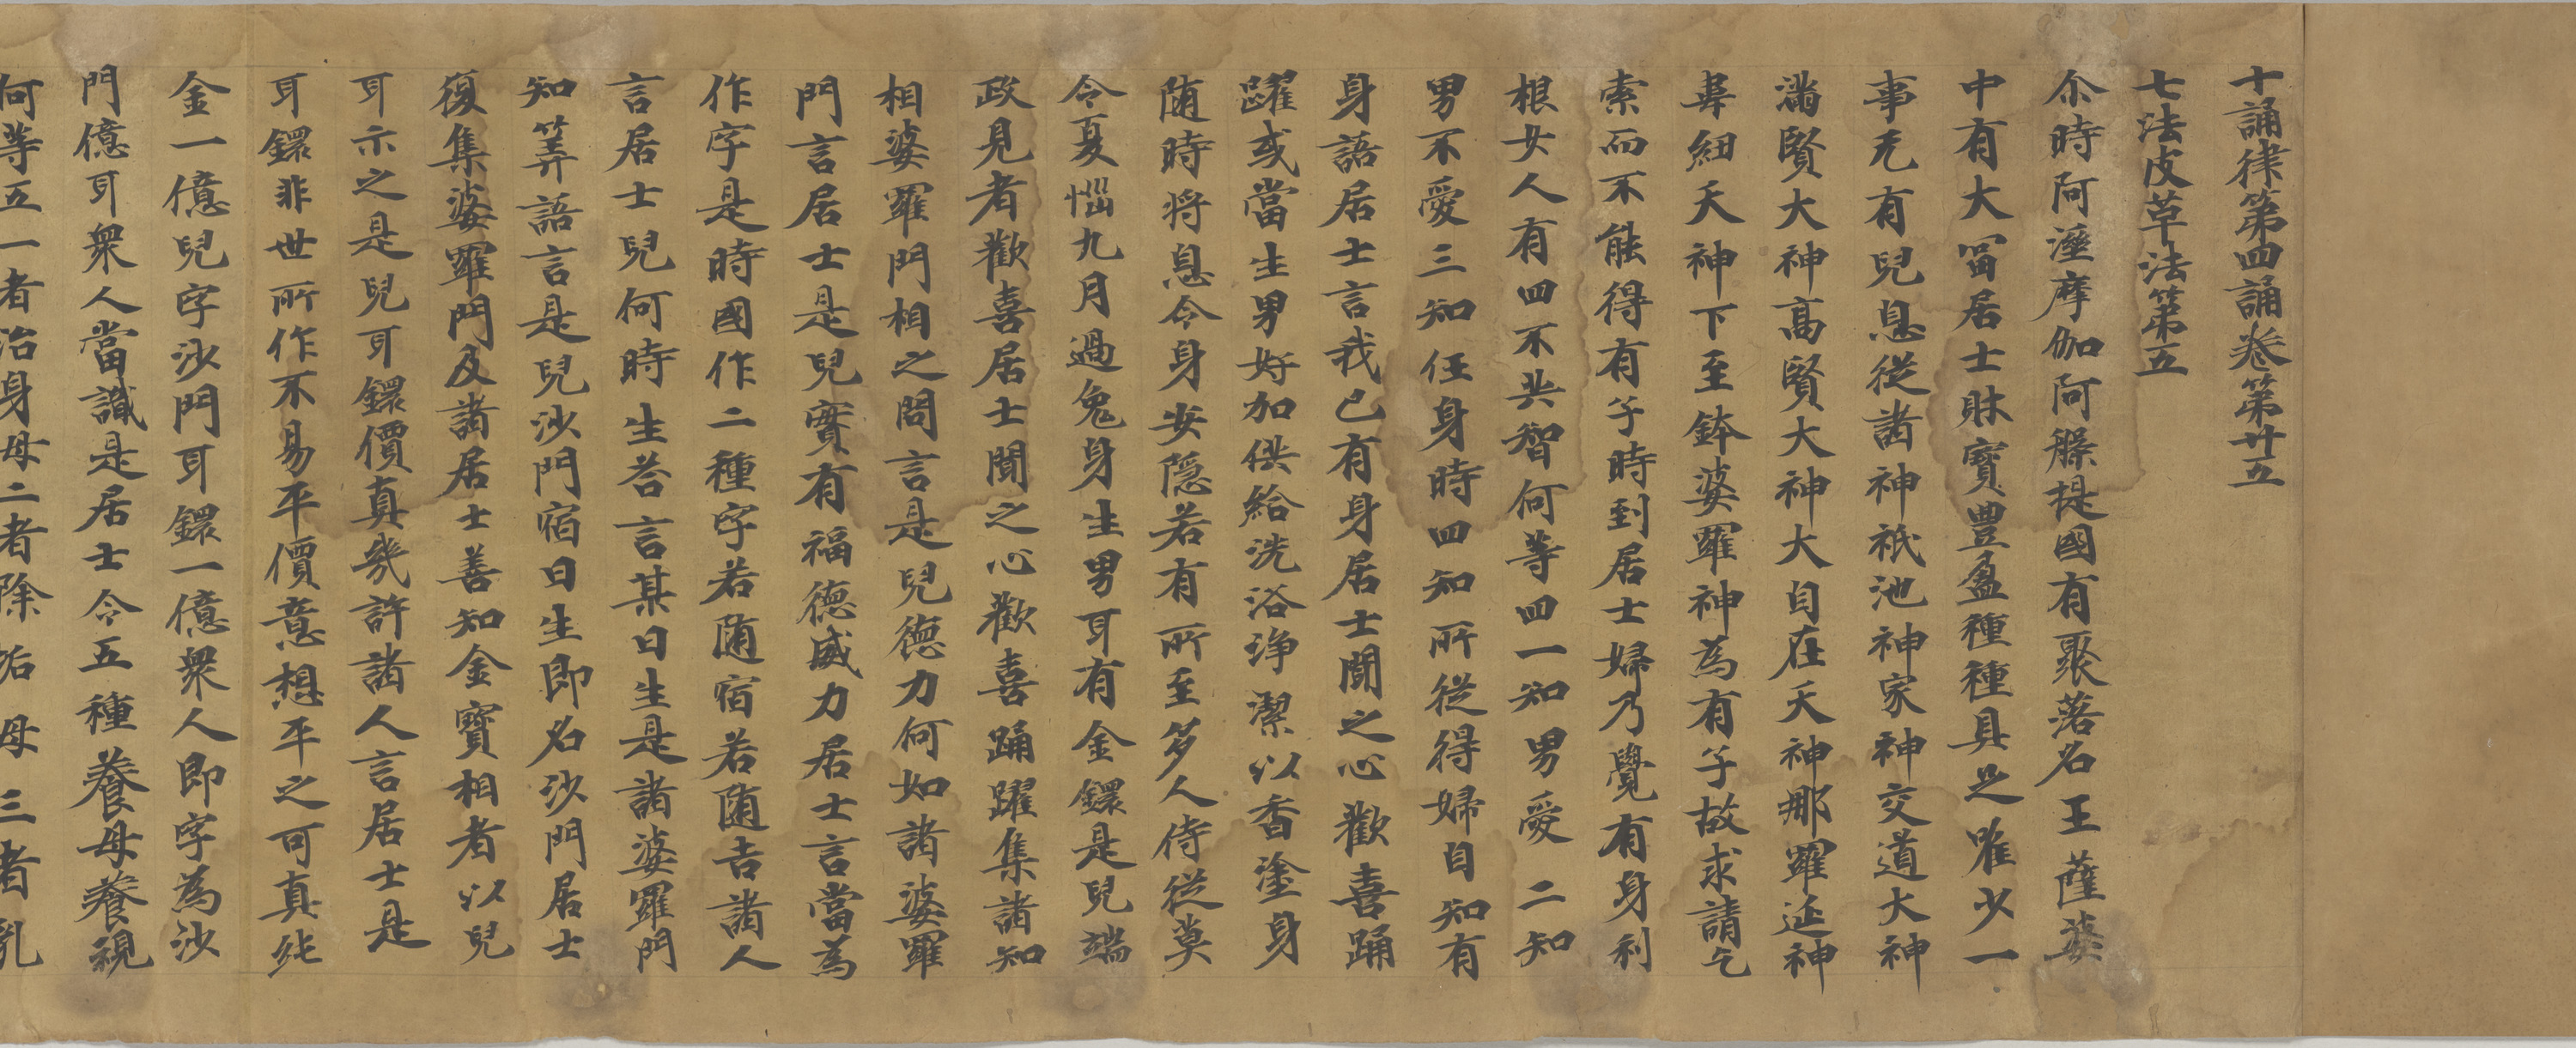 十誦律第四誦卷第廿五
七法皮革法第五
尒時阿溼摩伽阿槃提國有聚落名王薩婆
中有大冨居士財寶豊盈種種具足唯少一
事无有兒息從諸神祇池神家神交道大神
滿賢大神髙賢大神大自在天神那羅延神
韋紐天神下至鉢婆羅神神為有子故求請乞
索而不能得有子時到居士婦乃覺有身利
根女人有四不共智何等四一知男愛二知
男不愛三知任身時四知所從得婦自知有
身語居士言我已有身居士聞之心歡喜踊
躍或當生男好加供給洗浴淨潔以香塗身
随時将息令身安隠若有所至多人侍從莫
令憂惱九月過兔身生男耳有金鐶是兒端
政見者歡喜居士聞之心歡喜踊躍集諸知
相婆羅門相之問言是兒徳力何如諸婆羅
門言居士是兒實有福徳威力居士言當為
作字是時國作二種字若随宿若随吉諸人
言居士兒何時生荅言某日生是諸婆羅門
知筭語言是兒沙門宿日生即名沙門居士
復集婆羅門及諸居士善知金寶相者以兒
耳示之是兒耳鐶價真幾許諸人言居士是
耳鐶非世所作不易平價意想平之可真純
金一億兒字沙門耳鐶一億衆人即字為沙
門億耳衆人當識是居士令五種養母養視
何等五一者治身母二者除垢母三者乳